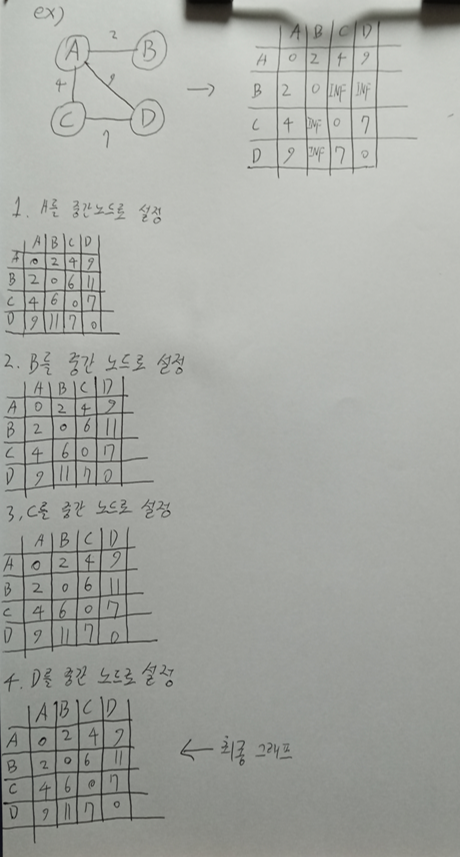 ex)
A 2 B
4 9
C 7 D
→
A B C D
A 0 2 4 9
B 2 0 INF INF
C 4 INF 0 7
D 9 INF 7 0
1. A를 중간노드로 설정
A B C D
A 0 2 4 9
B 2 0 6 11
C 4 6 0 7
D 9 11 7 0
2. B를 중간 노드로 설정
A B C D
A 0 2 4 9
B 2 0 6 11
C 4 6 0 7
D 9 11 7 0
3. C를 중간 노드로 설정
A B C D
A 0 2 4 9
B 2 0 6 11
C 4 6 0 7
D 9 11 7 0
4. D를 중간 노드로 설정
A B C D
A 0 2 4 9
B 2 0 6 11
C 4 6 0 7
D 9 11 7 0
← 최종 그래프